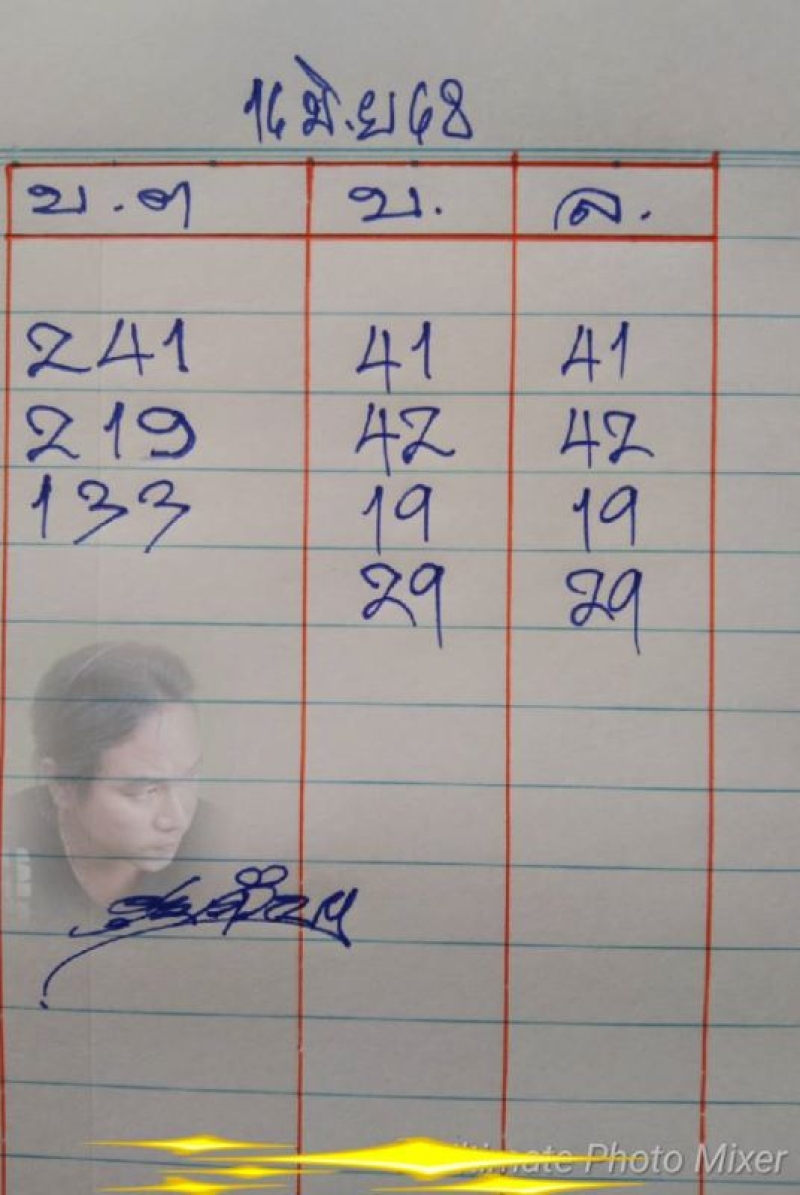 16 มิ.ย 68
บ.ต บ. ล.
241 41 41
219 42 42
133 19 19
29 29
Photo Mixer